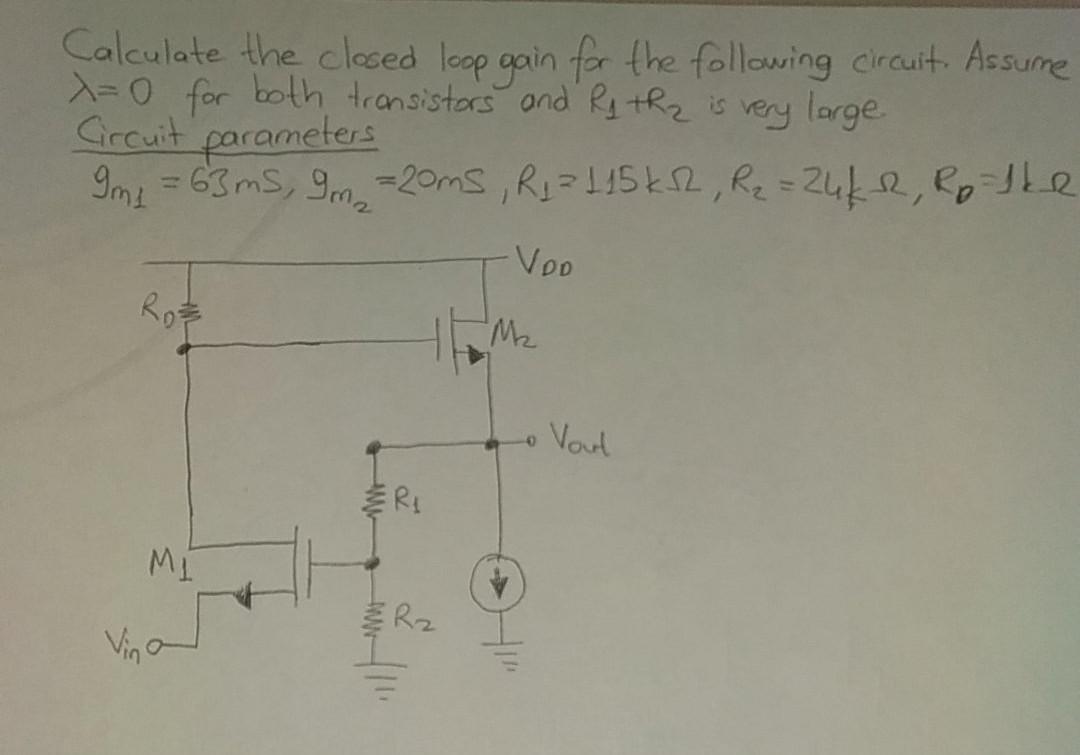 Calculate the closed loop gain for the following circuit. Assume
λ=0 for both transistors and R₁+R₂ is very large.
Circuit parameters
gm₁ = 63mS, gm₂ = 20mS, R₁ = 115kΩ, R₂ = 24kΩ, R_D = 1kΩ
V_DD
R_D
M₂
Vout
R₁
M₁
R₂
Vin